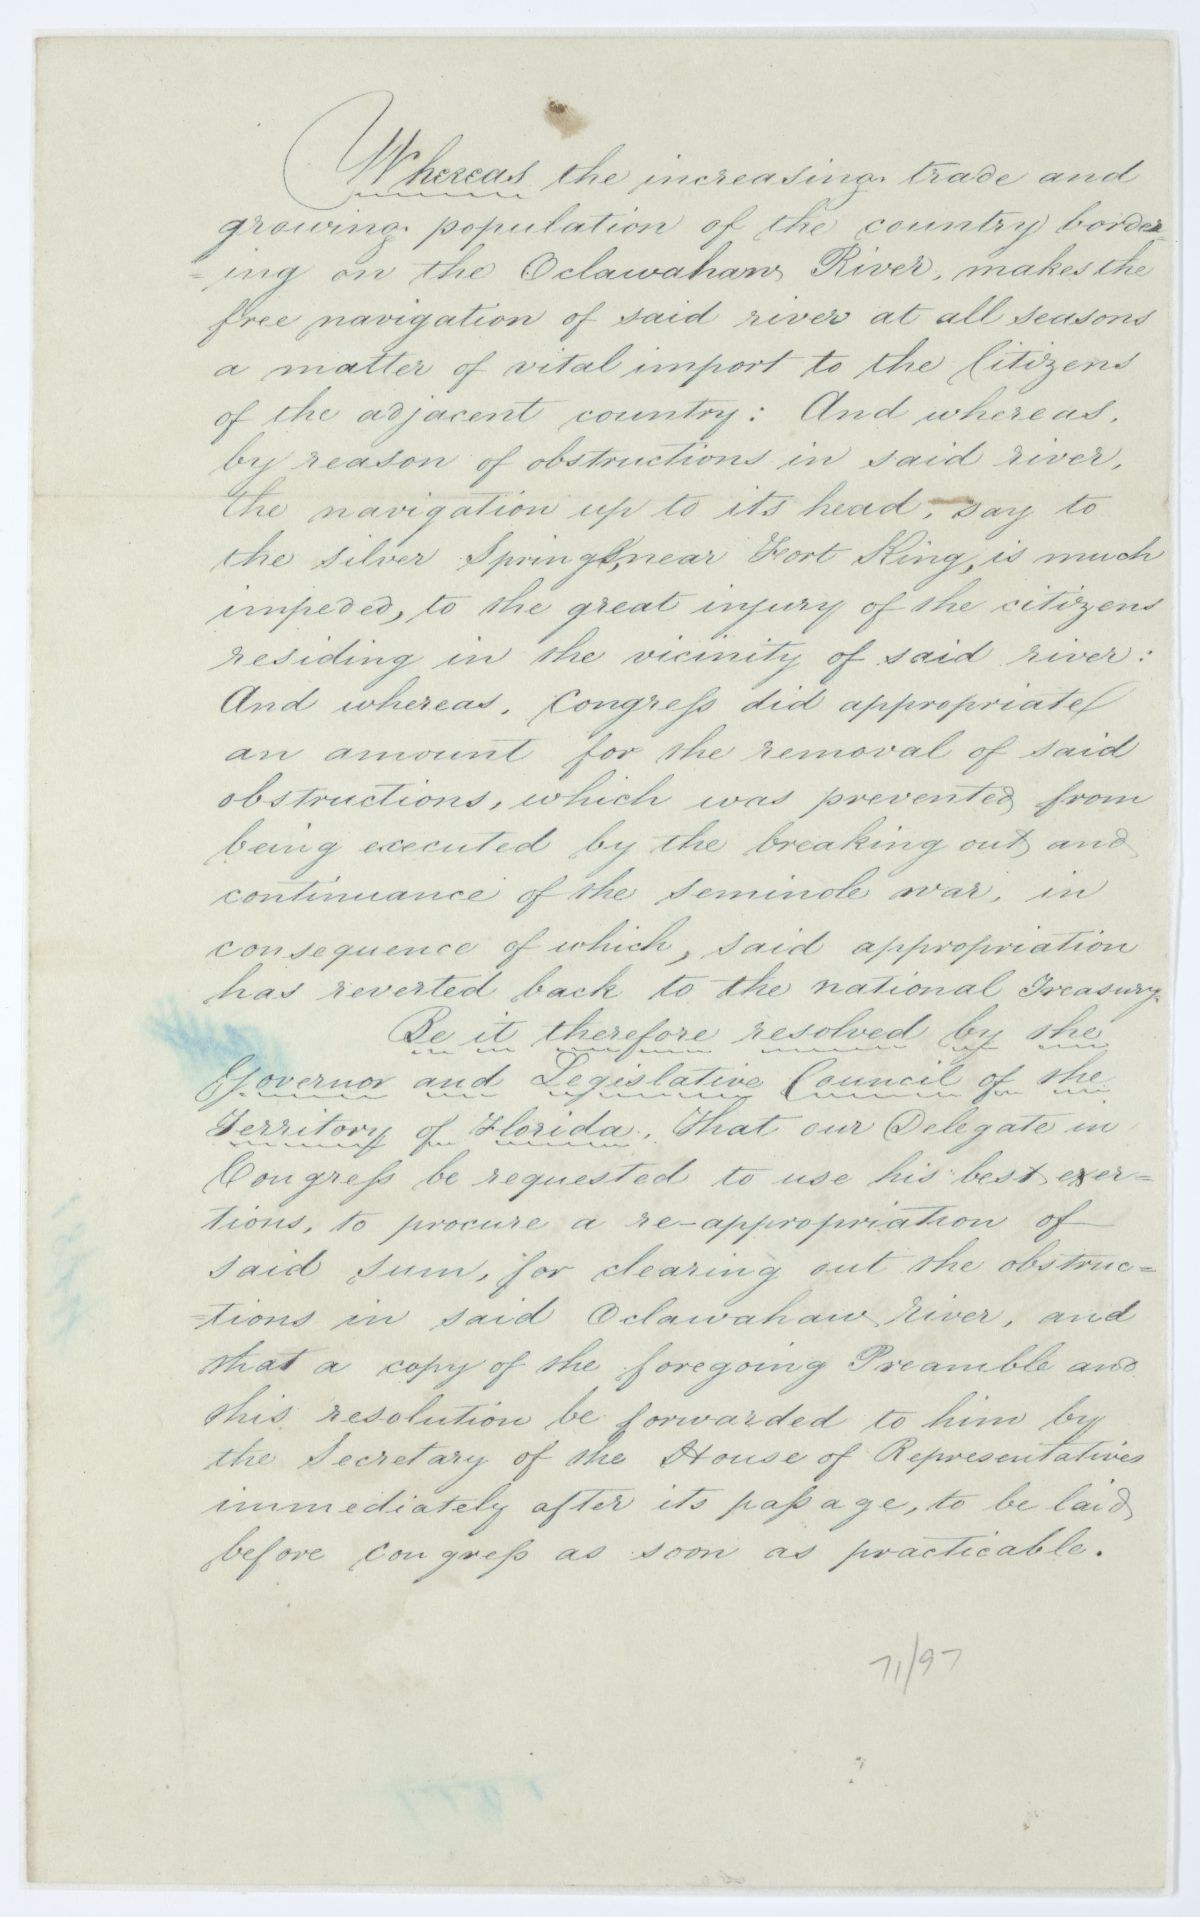 Whereas the increasing trade and
growing population of the country border-
=ing on the Oclawahaw River, makes the
free navigation of said river at all seasons
a matter of vital import to the Citizens
of the adjacent country: And whereas,
by reason of obstructions in said river,
the navigation up to its head, say to
the silver Springs, near Fort King, is much
impeded, to the great injury of the citizens
residing in the vicinity of said river:
And whereas, Congress did appropriate
an amount for the removal of said
obstructions, which was prevented from
being executed by the breaking out and
continuance of the Seminole war, in
consequence of which, said appropriation
has reverted back to the national Treasury.
Be it therefore resolved by the
Governor and Legislative Council of the
Territory of Florida, That our Delegate in
Congress be requested to use his best exer=
tions, to procure a re-appropriation of
said sum, for clearing out the obstruc=
=tions in said Oclawahaw river, and
that a copy of the foregoing Preamble and
this resolution be forwarded to him by
the Secretary of the House of Representatives
immediately after its passage, to be laid
before Congress as soon as practicable.
71/97